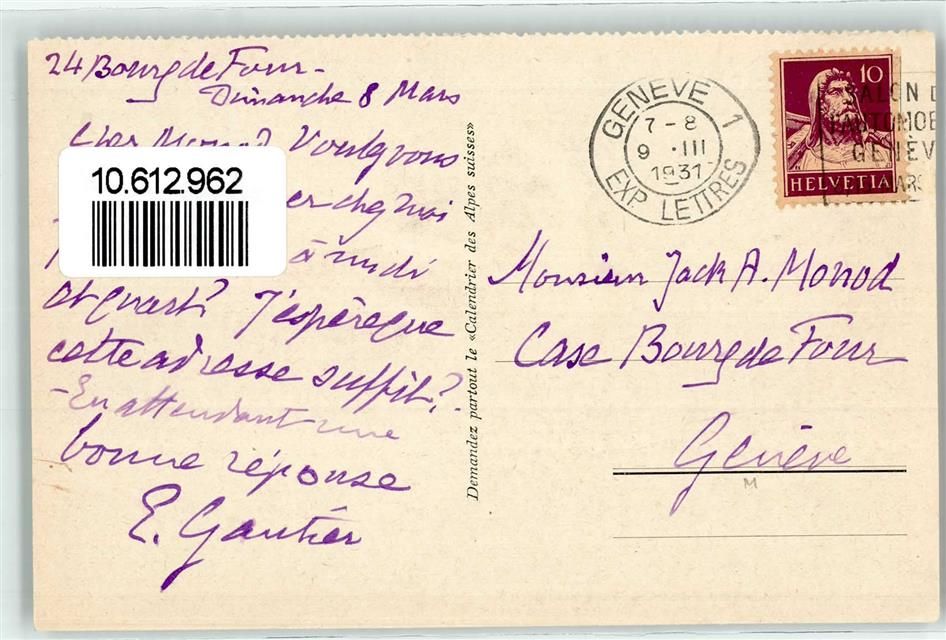 24 Bourg de Four -
Dimanche 8 Mars
Cher Monod Voulez vous
10.612.962
er chez moi
à midi
et quart? J'espère que
cette adresse suffit?
- En attendant une
bonne réponse
E. Gautier
Demandez partout le «Calendrier des Alpes suisses»
GENÈVE 1
7 - 8
9 .III
1931
EXP. LETTRES
10
HELVETIA
SALON D
AUTOMOB
GENEV
ARS
Monsieur Jack A. Monod
Case Bourg de Four
Genève
M